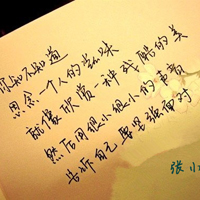 你知不知道
思念一个人的滋味
就像欣赏一种残酷的美
然后用很小很小的声音
告诉自己要坚强面对
张小